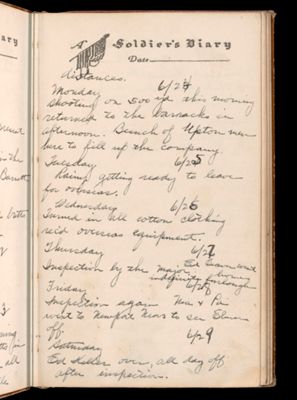 A Soldier's Diary
Date
distances.
Monday 6/24
Shooting on 500 yd this morning
returned to the barracks in
afternoon. Bunch of Upton men
here to fill up the company.
Tuesday 6/25
Rainy getting ready to leave
for overseas.
Wednesday 6/26
Turned in all cotton clothing
rec'd overseas equipment.
Thursday 6/27
Inspection by the major
Ed went
home
indefinite furlough
Friday 6/28
Inspection again Mrs & Pa
went to Newport News to see Elmer
off.
6/29
Saturday
Ed Keller over, all day off
after inspection.